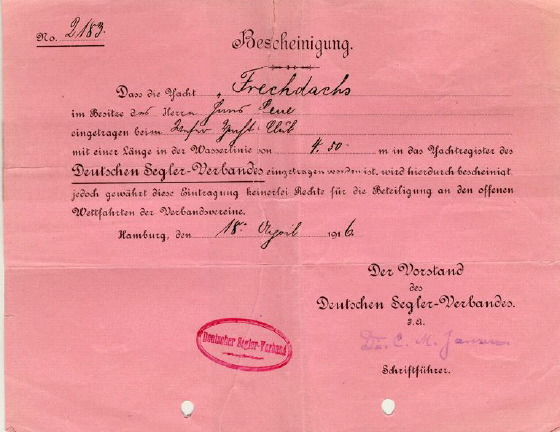 No. 2183.
Bescheinigung.
Dass die Yacht „Frechdachs
im Besitze des Herrn Hans
eingetragen beim Yacht Club
mit einer Länge in der Wasserlinie von 4.50 m in das Yachtregister des
Deutschen Segler-Verbandes eingetragen worden ist, wird hierdurch bescheinigt,
jedoch gewährt diese Eintragung keinerlei Rechte für die Beteiligung an den offenen
Wettfahrten der Verbandsvereine.
Hamburg, den 18. April 1916.
Der Vorstand
des
Deutschen Segler-Verbandes.
I. A.
Deutscher Segler-Verband
Dr. C. M.
Schriftführer.